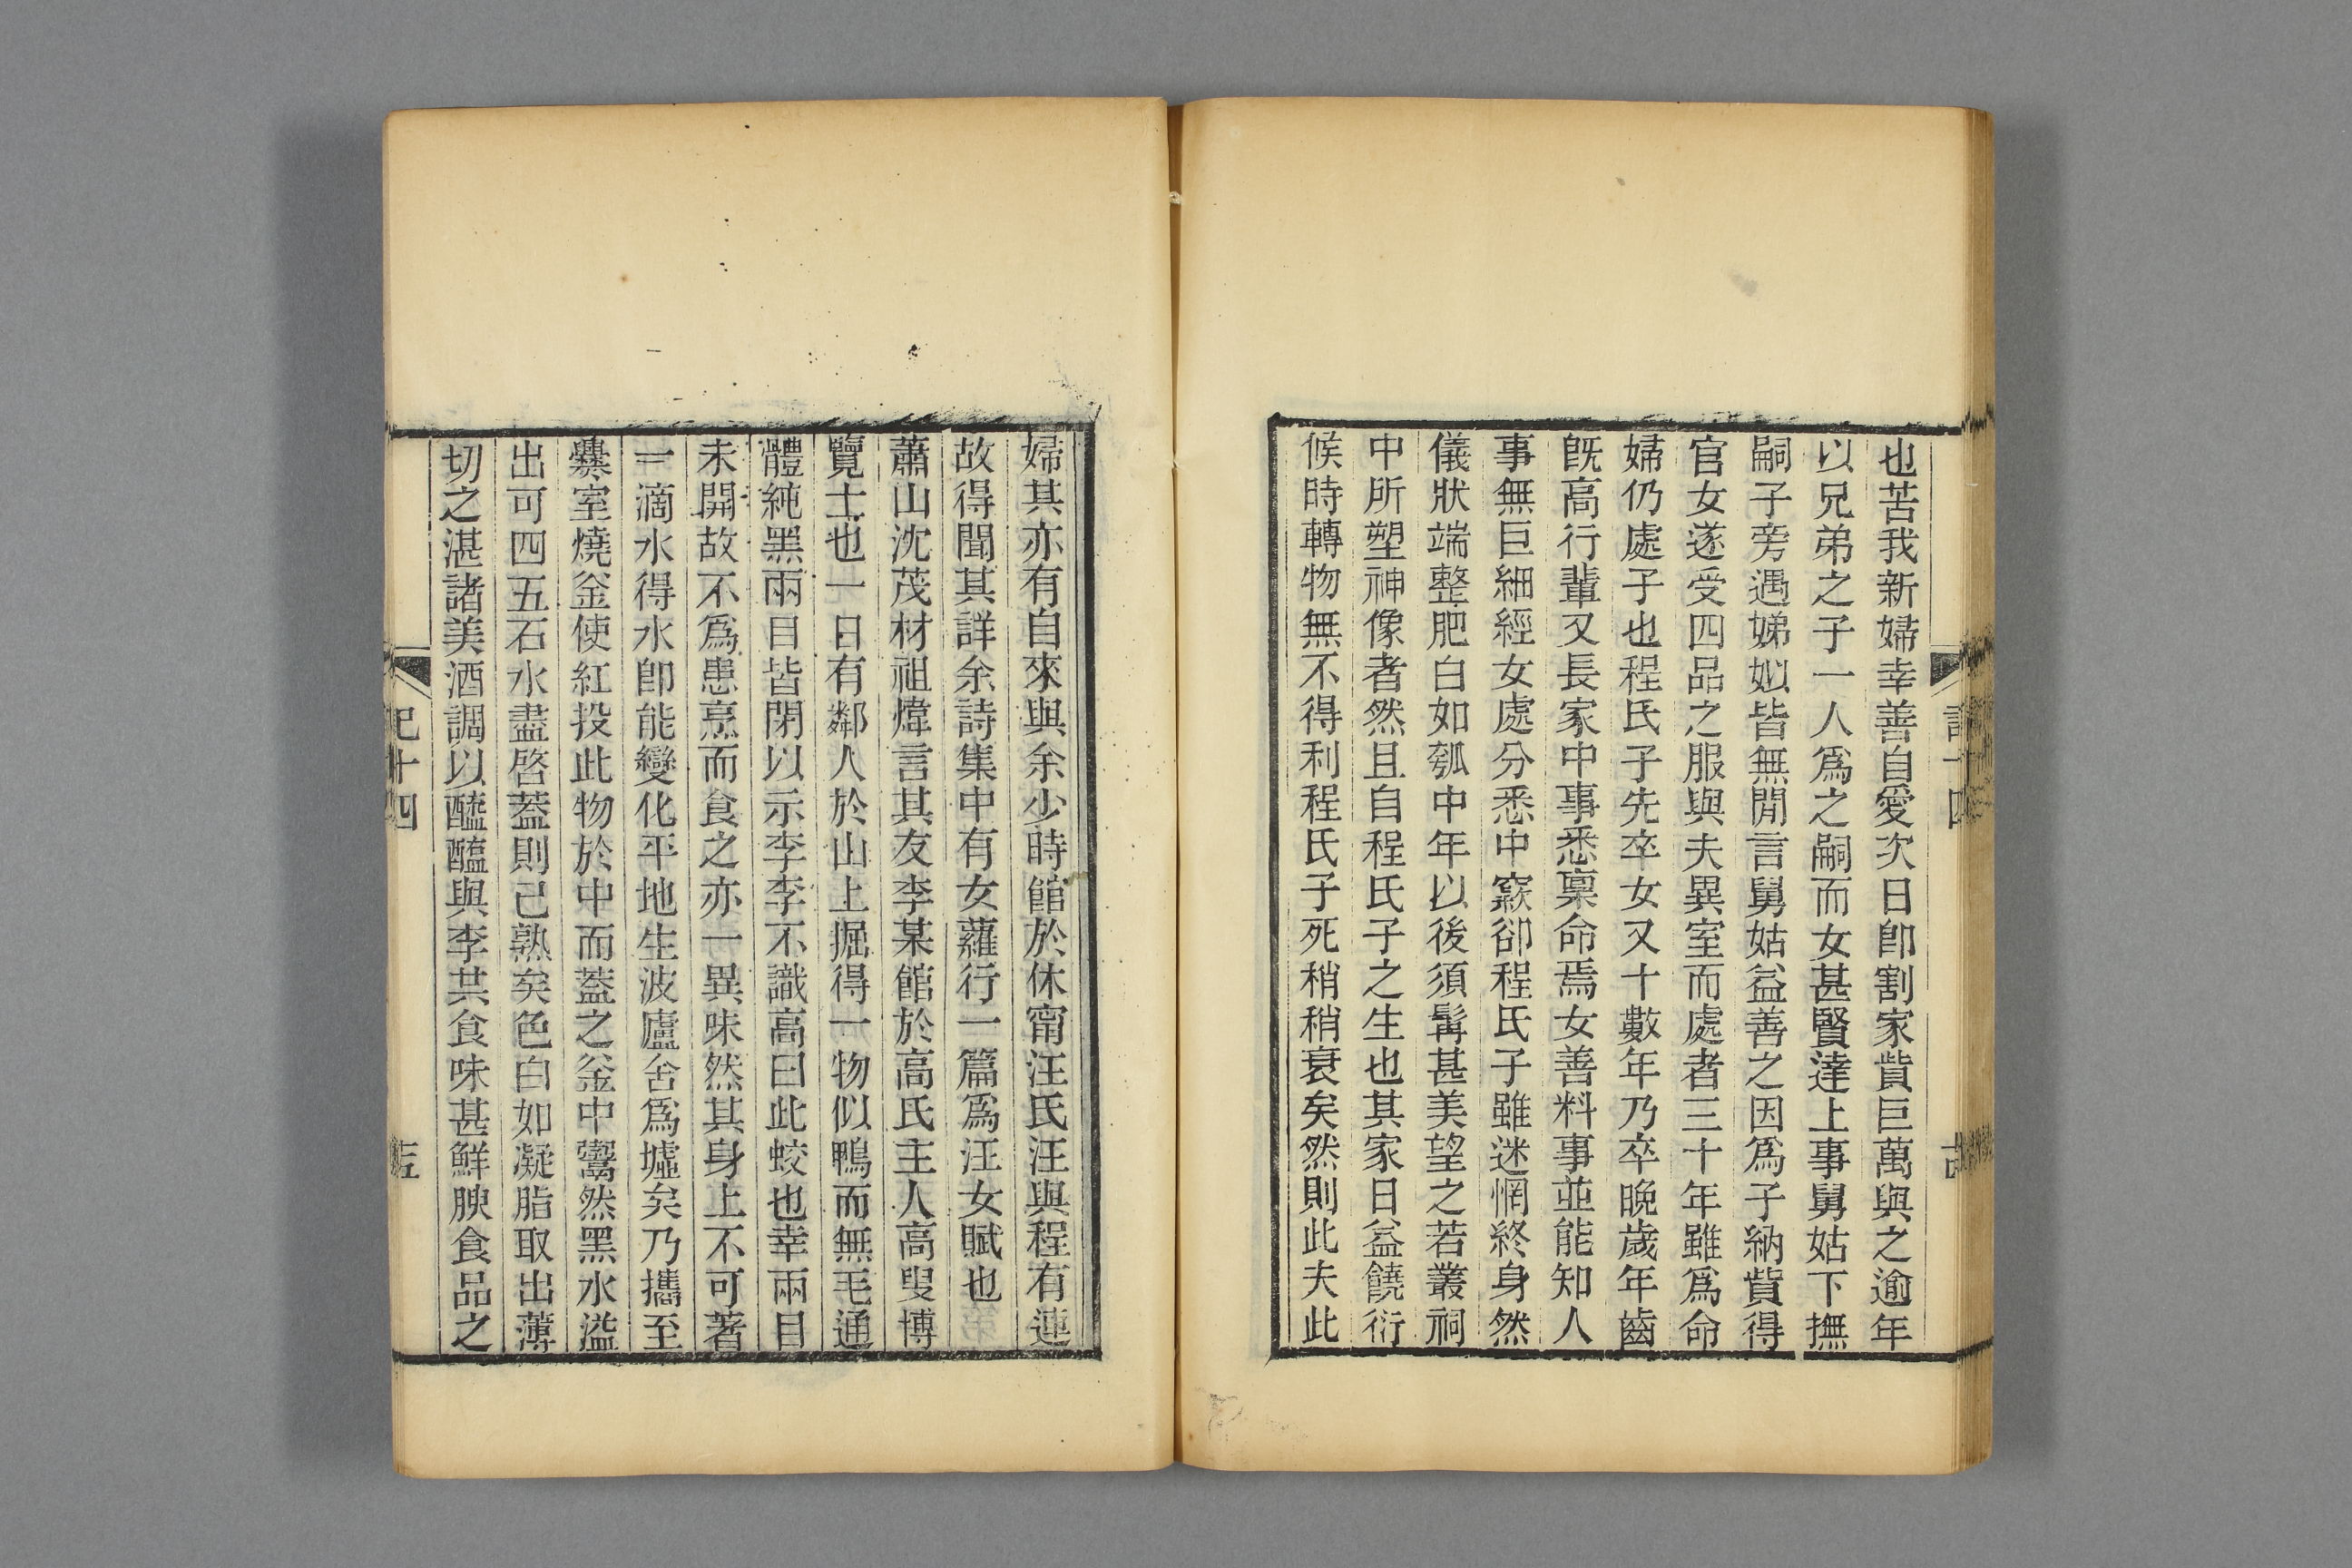 也苦我新婦幸善自愛次日卽割家貲巨萬與之逾年
以兄弟之子一人爲之嗣而女甚賢達上事舅姑下撫
嗣子旁遇娣姒皆無閒言舅姑益善之因爲子納貲得
官女遂受四品之服與夫異室而處者三十年雖爲命
婦仍處子也程氏子先卒女又十數年乃卒晚歲年齒
旣高行輩又長家中事悉稟命焉女善料事並能知人
事無巨細經女處分悉中窾郤程氏子雖迷惘終身然
儀狀端整肥白如瓠中年以後須髯甚美望之若叢祠
中所塑神像者然且自程氏子之生也其家日益饒衍
候時轉物無不得利程氏子死稍稍衰矣然則此夫此
婦其亦有自來與余少時館於休甯汪氏汪與程有連
故得聞其詳余詩集中有女蘿行一篇爲汪女賦也
蕭山沈茂材祖煒言其友李某館於高氏主人高叟博
覽士也一日有鄰人於山上掘得一物似鴨而無毛通
體純黑兩目皆閉以示李李不識高曰此蛟也幸兩目
未開故不爲患烹而食之亦一異味然其身上不可著
一滴水得水卽能變化平地生波廬舍爲墟矣乃攜至
爨室燒釜使紅投此物於中而蓋之釜中鬻然黑水溢
出可四五石水盡啓蓋則已熟矣色白如凝脂取出薄
切之湛諸美酒調以醯醢與李共食味甚鮮腴食品之
記十四